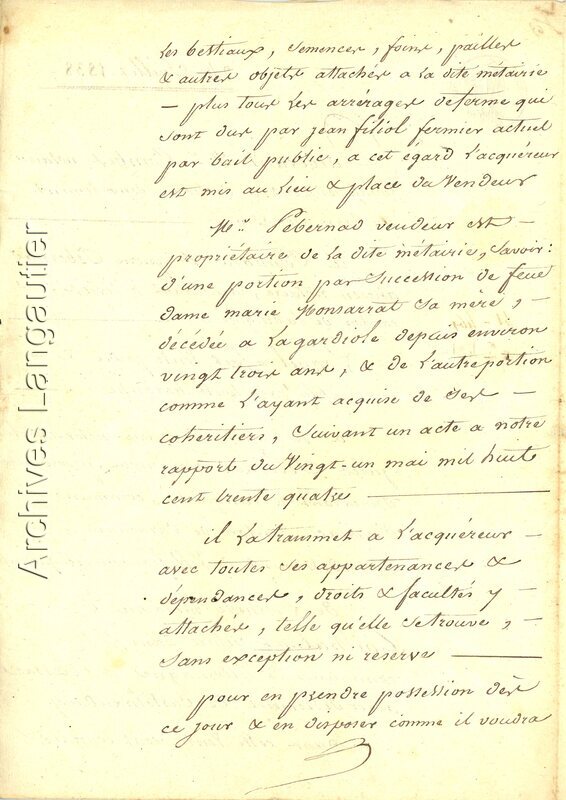 les bestiaux, semences, foins, pailles
& autres objets attachés a la dite métairie
— plus tous les arrérages de ferme qui
sont dus par jean filiol fermier actuel
par bail public, a cet égard l'acquéreur
est mis au lieu & place du Vendeur
Mr. Pebernad vendeur est —
propriétaire de la dite métairie, savoir:
d'une portion par succession de feue
dame marie Monsarrat sa mère, —
décédée a Lagardiole depuis environ
vingt trois ans, & de l'autre portion
comme l'ayant acquise de ses —
coheritiers, suivant un acte a notre
rapport du Vingt-un mai mil huit
cent trente quatre —
il la transmet a l'acquéreur —
avec toutes ses appartenances &
dépendances, droits & facultés y
attachés, telle qu'elle se trouve, —
sans exception ni reserve —
pour en prendre possession dès
ce jour & en disposer comme il voudra
Archives Langautier
1838